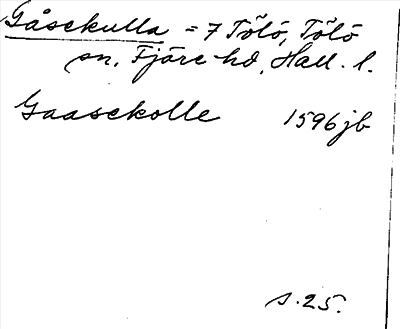 Gåsekulla = 7 Tölö, Tölö
sn, Fjäre hd, Hall. l.
Gaasekolle 1596 jb
s. 25.